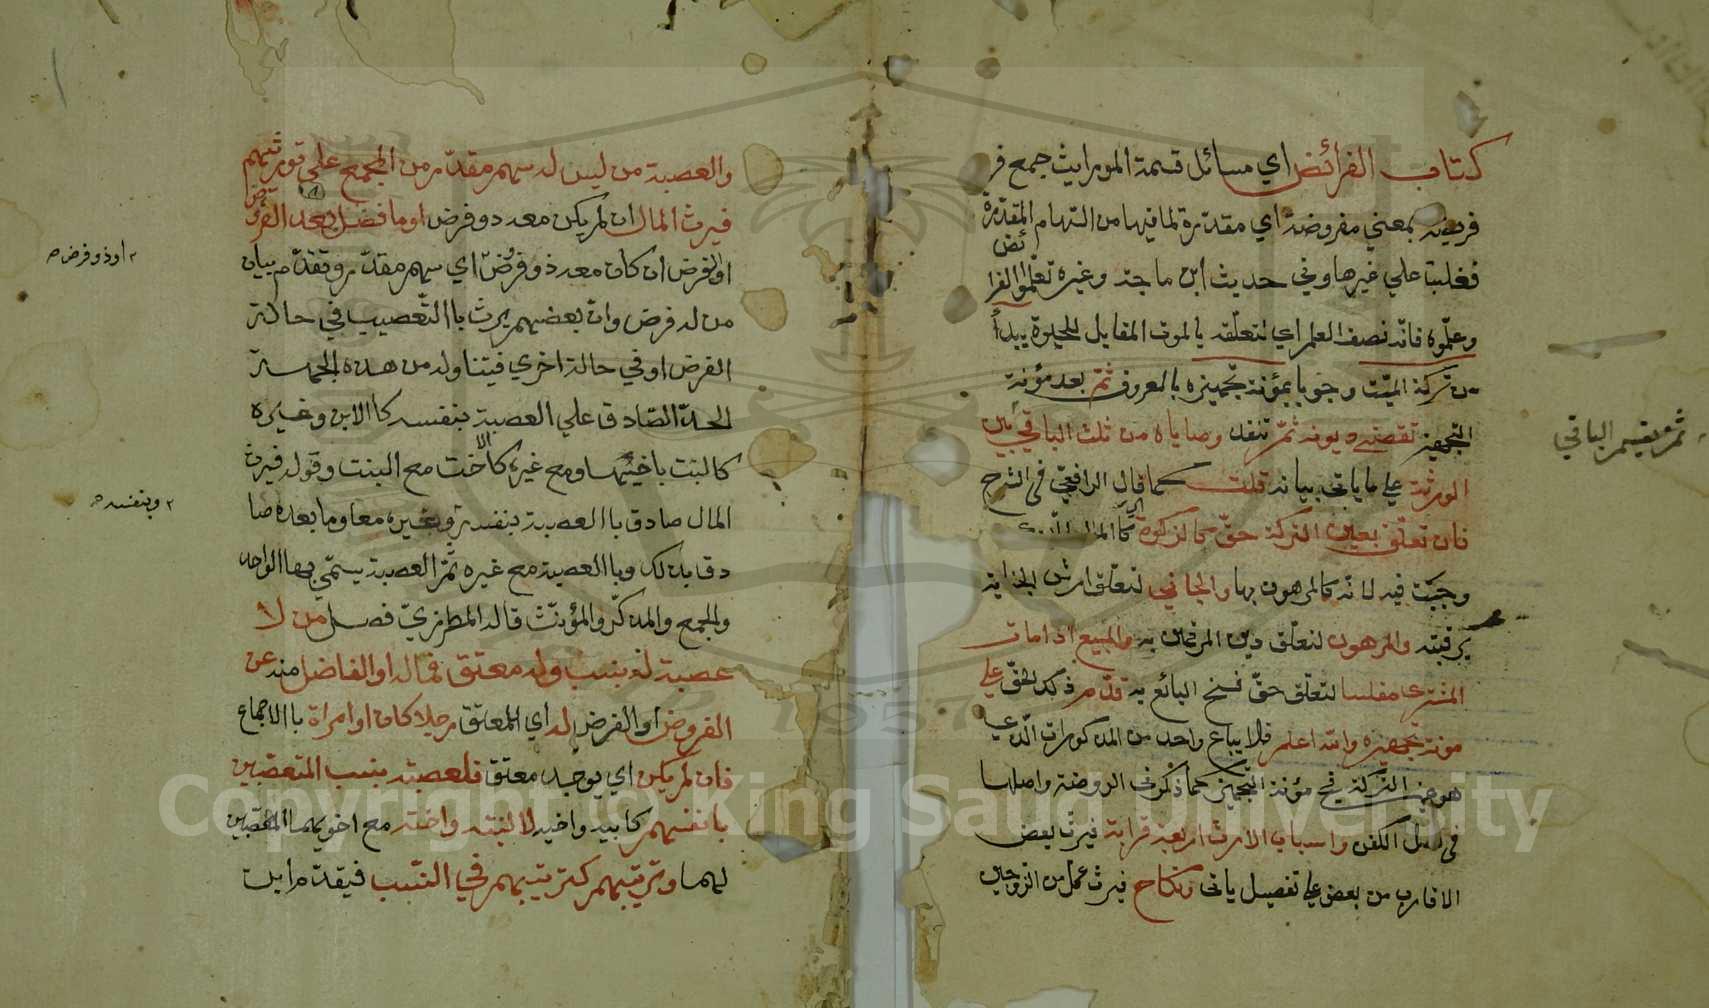 كتاب الفرائض اي مسائل قسمة المواريث جمع
فريضة بمعني مفروضة اي مقدرة لما فيها من السهام المقدرة
فغلبت علي غيرها وفي حديث ابن ماجة وغيره تعلموا الفرائض
وعلموه فانه نصف العلم اي لتعلقه بالموت المقابل للحيوة يبدأ
من تركة الميت وجوبا بمؤنة تجهيزه بالمعروف ثم بعد مؤنة
التجهيز تقضي ديونه ثم تنفذ وصاياه من ثلث الباقي بين
الورثة علي ما ياتي بيانه قلت كما قال الرافعي في الشرح
فان تعلق بعين التركة حق كالزكوة كالمال الذي
وجبت فيه لانه كالمرهون بها والجاني لتعلق ارش الجناية
برقبته والمرهون لتعلق دين المرتهن به والمبيع اذا مات
المشتري مفلسا لتعلق حق فسخ البائع به قدم ذلك الحق علي
مونة تجهيزه والله اعلم فلا يباع واحد من المذكورات الذي
هو عين التركة في مؤنة التجهيز كما ذكر في الروضة واصلها
في الكفن واسباب الارث اربعة قرابة فيرث بعض
الاقارب من بعض علي تفصيل ياتي ونكاح فيرث كل من الزوجين
ثم ويقسم الباقي
والعصبة من ليس له سهم مقدر من المجمع علي توريثهم
فيرث المال ان لم يكن معه ذو فرض او ما فضل بعد الفروض
او الفرض ان كان معه ذو فروض اي سهم مقدر وتقدم بيان
من له فرض وان بعضهم يرث باالتعصيب في حالة
الفرض او في حالة اخري فيتناوله من هذه الجهة
الحد الصادق علي العصبة بنفسه كاالابن وغيره
كالبنت باخيها ومع غيره كالأخت مع البنت وقوله فيرث
المال صادق باالعصبة بنفسه وبغيره معا وما بعده صا
دق بذلك وباالعصبة مع غيره ثم العصبة يسمي بها الواحد
والجمع والمذكر والمؤنث قاله المطرزي فصل من لا
عصبة له بنسب وله معتق فماله او الفاضل منه عن
الفروض او الفرض له اي المعتق رجلا كان او امراة باالاجماع
فان لم يكن اي يوجد معتق فلعصبته بنسب المتعصبين
بانفسهم كابيه واخيه لا لبنته واخته مع اخويهما المعصبين
لهما وترتيبهم كترتيبهم في النسب فيقدم ابن
او ذو فرض
وبنفسه
Copyright © King Saud University
1957